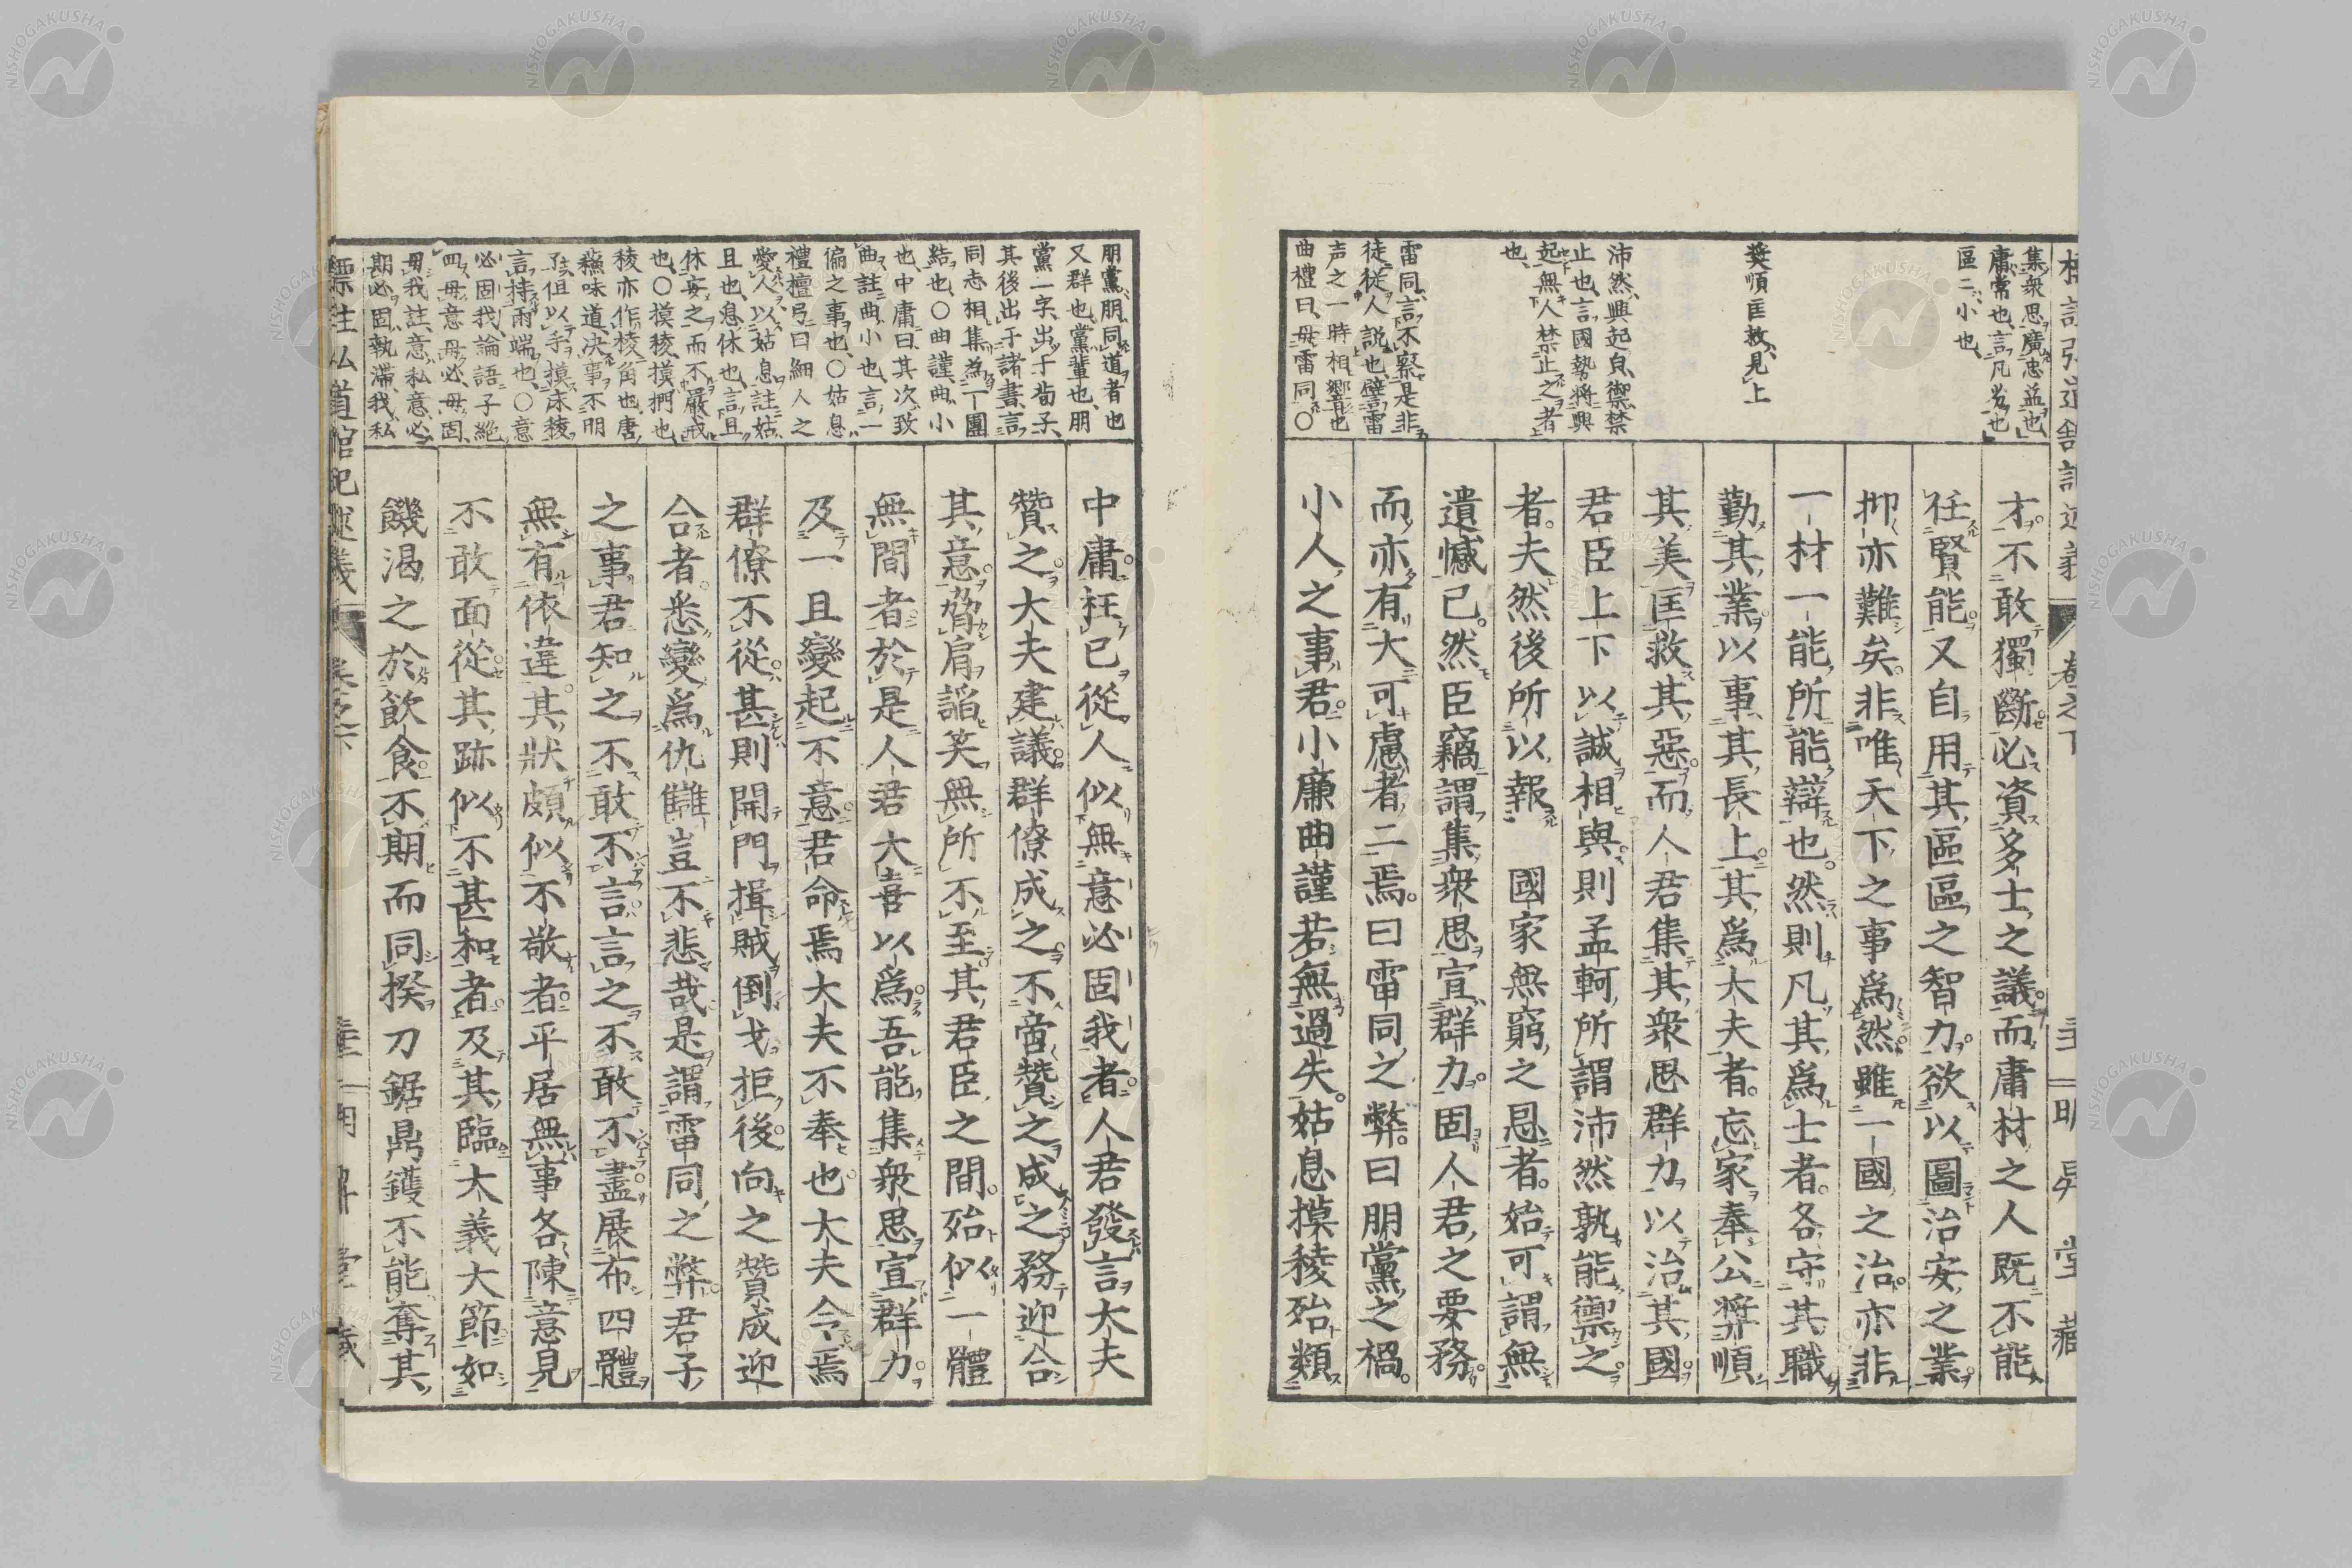 集衆思廣忠益也
庸常也言凡劣也
區二小也
奬順匡救見上
沛然興起皃禦禁
止也言國勢將興
起無人禁止之者
也
雷同言不察是非
徒從人説也譬雷
声之一時相響也
曲禮曰毋雷同〇
才不敢獨斷必資多士之議而庸材之人既不能
任賢能又自用其區區之智力欲以圖治安之業
抑亦難矣非唯天下之事爲然雖一國之治亦非
一材一能所能辯也然則凡其爲士者各守其職
勤其業以事其長上其爲大夫者忘家奉公奬順
其美匡救其惡而人君集其衆思群力以治其國
君臣上下以誠相與則孟軻所謂沛然孰能禦之
者夫然後所以報 國家無窮之恩者始可謂無
遺憾已然臣竊謂集衆思宣群力固人君之要務
而亦有大可慮者二焉曰雷同之弊曰朋黨之禍
小人之事君小廉曲謹若無過失姑息摸稜殆類
朋黨朋同道者也
又群也黨輩也朋
黨一字出于荀子
其後出于諸書言
同志相集爲一團
結也〇曲謹曲小
也中庸曰其次致
曲註曲小也言一
偏之事也〇姑息
禮檀弓曰細人之
愛人以姑息註姑
且也息休也言且
休安之而不嚴戒
也〇摸稜摸捫也
稜亦作棱角也唐
蘇味道決事不明
了但以手摸床稜
言持兩端也〇意
必固我論語子絶
四毋意毋必毋固
毋我註意私意必
期必固執滯我私
中庸枉已從人似無意必固我者人君發言大夫
贊之大夫建議群僚成之不啻贊之成之務迎合
其意脅肩諂笑無所不至其君臣之間殆似一體
無間者於是人君大喜以爲吾能集衆思宣群力
及一旦變起不意君命焉大夫不奉也大夫令焉
群僚不從甚則開門揖賊倒戈拒後向之贊成迎
合者悉變爲仇讎豈不悲哉是謂雷同之弊君子
之事君知之不敢不言言之不敢不盡展布四體
無有依違其狀頗似不敬者平居無事各陳意見
不敢面從其跡似不甚和者及其臨大義大節如
饑渴之於飲食不期而同揆刀鋸鼎鑊不能奪其